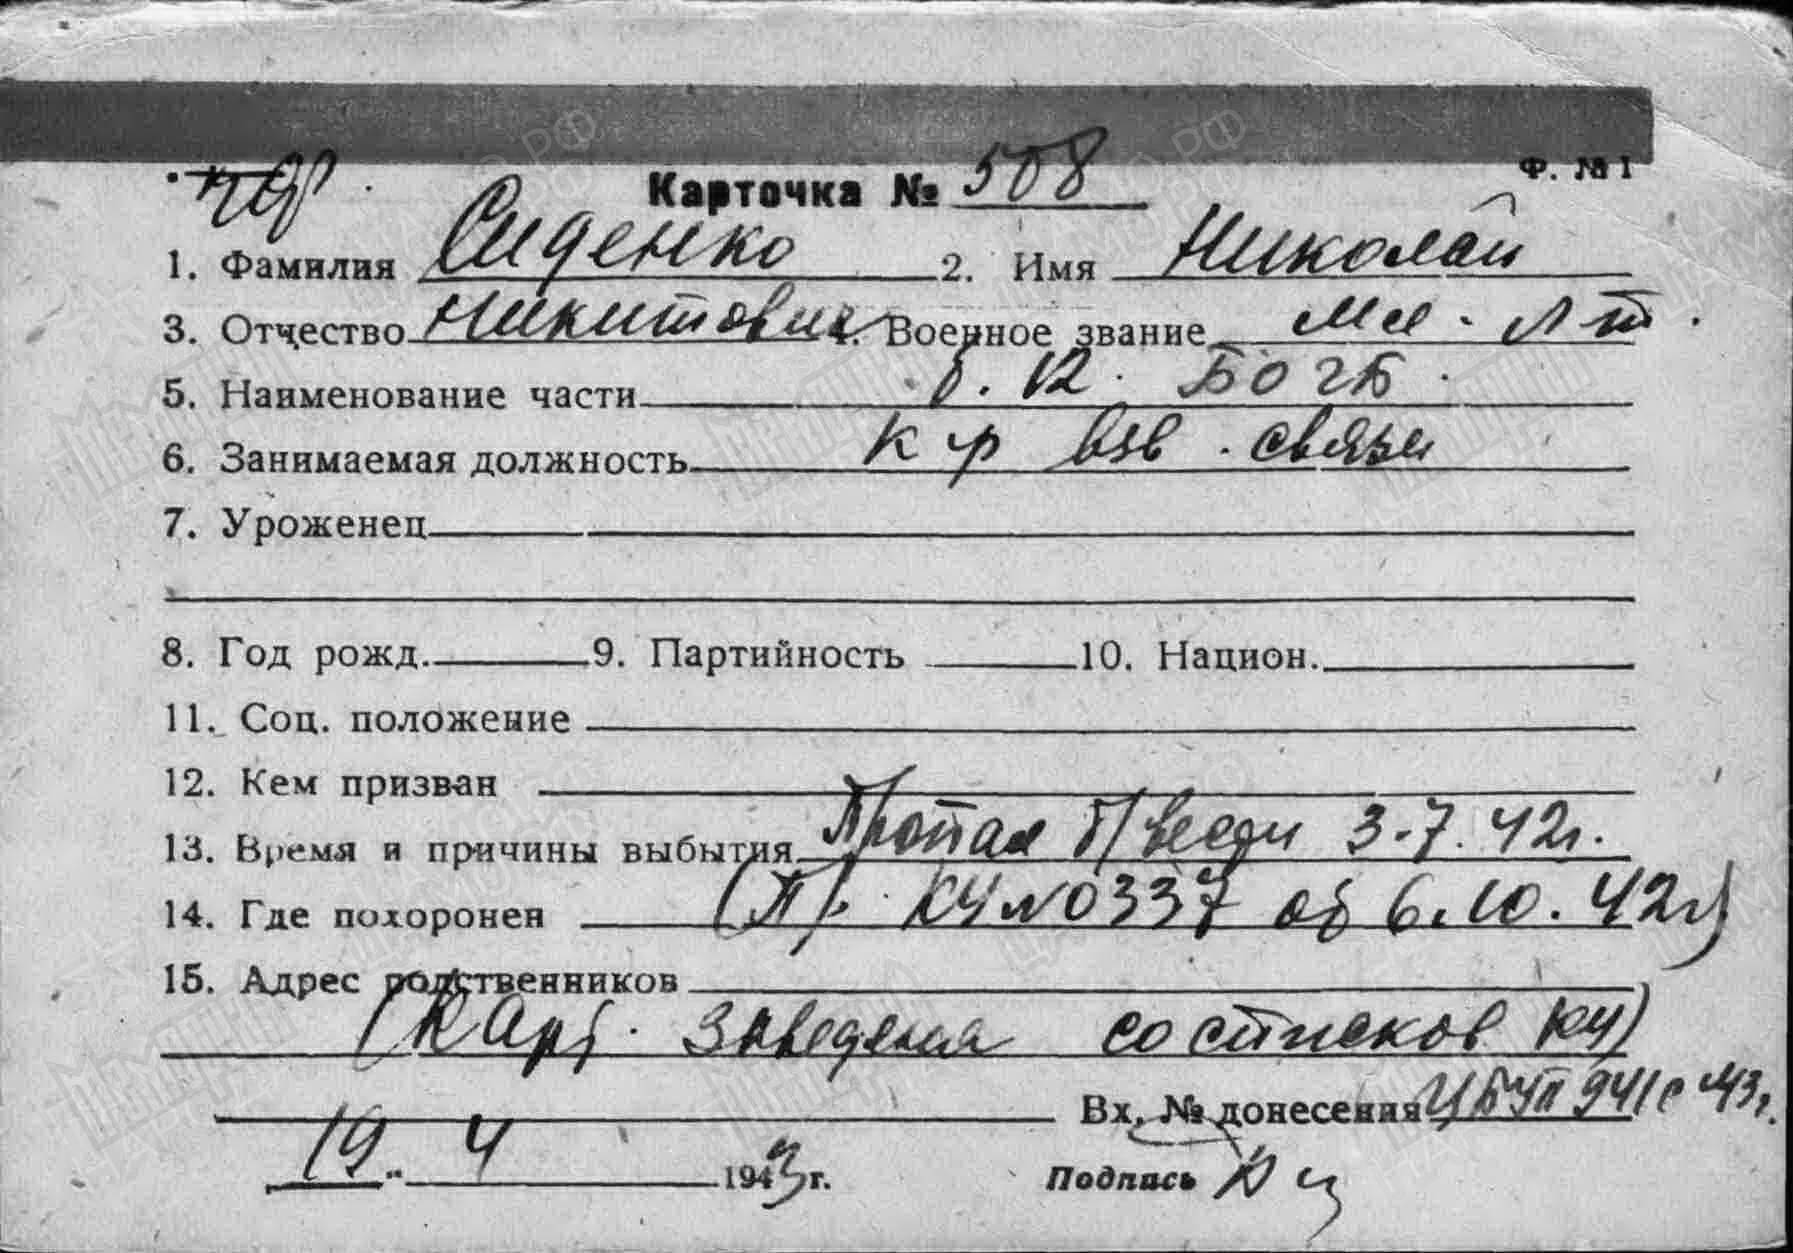 Ф. № 1
Карточка № 508
1. Фамилия Сиденко 2. Имя Николай
3. Отчество Никитович 4. Военное звание мл. л-т.
5. Наименование части б. 12. БОЧБ.
6. Занимаемая должность к-р взв. связи
7. Уроженец
8. Год рожд. 9. Партийность 10. Национ.
11. Соц. положение
12. Кем призван
13. Время и причины выбытия Пропал б/вести 3.7.42г.
14. Где похоронен (Пр. КЧ №0337 от 6.10.42г)
15. Адрес родственников
(Карт. заведена со списков КЧ)
Вх. № донесения ЦБУП 941с 43г.
19 " 4 1943 г. Подпись